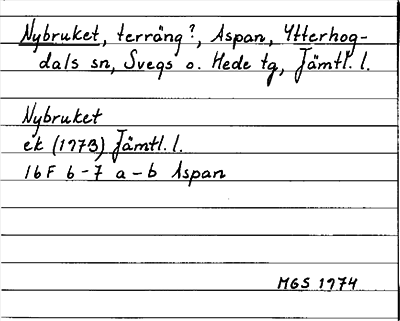 Nybruket, terräng?, Aspan, Ytterhog-
dals sn, Svegs o. Hede tg, Jämtl. l.
Nybruket
ek (1973) Jämtl. l.
16F 6-7 a-b Aspan
MGS 1974